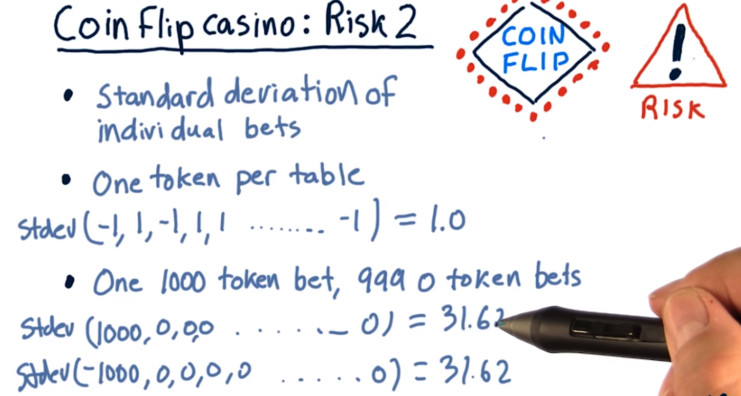 Coin Flip Casino: Risk 2
COIN
FLIP
RISK
• Standard deviation of
individual bets
• One token per table
Stdev (-1, 1, -1, 1, 1 ........ -1) = 1.0
• One 1000 token bet, 999 0 token bets
Stdev (1000, 0, 0,0 ....... 0) = 31.62
Stdev (-1000, 0, 0, 0, 0 ...... 0) = 31.62